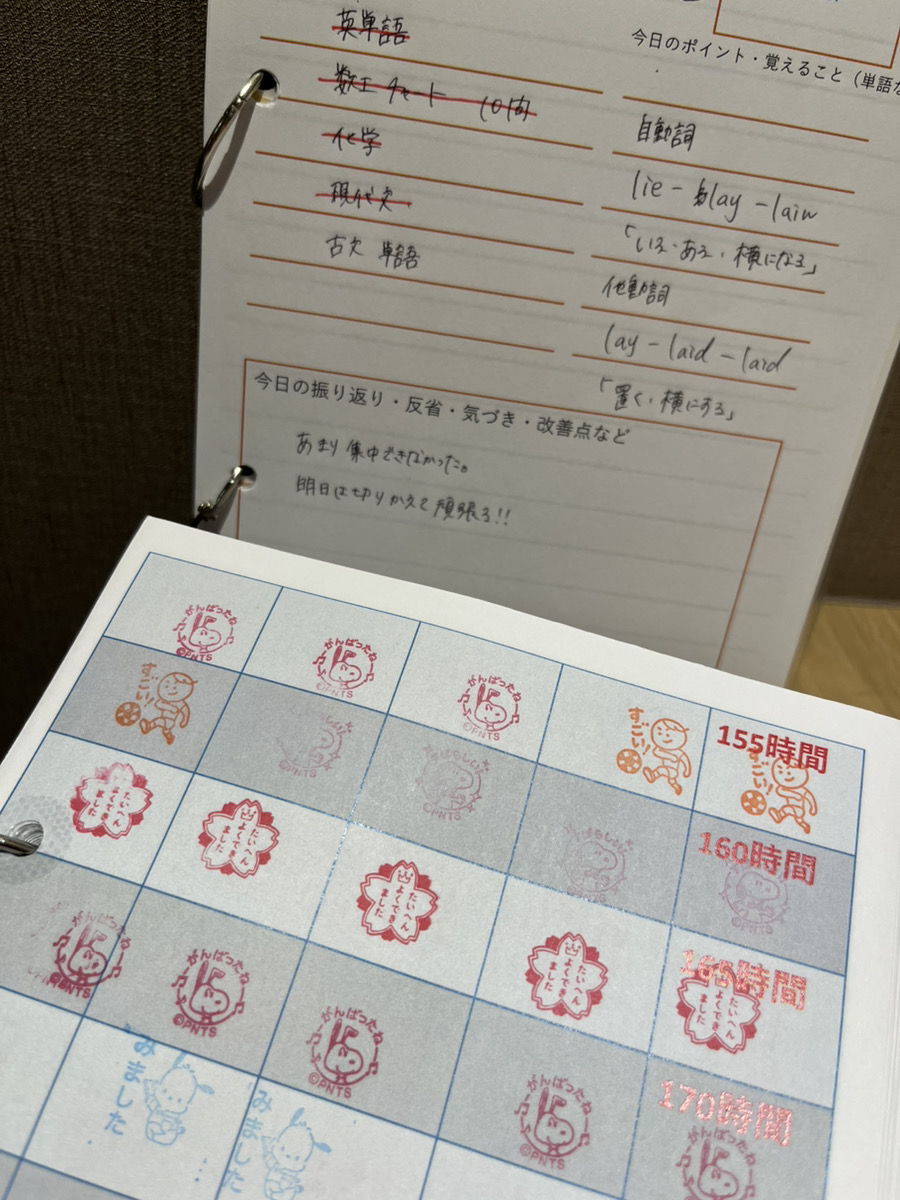 英単語
数Ⅰ チャート 10問
化学
現代文
古文 単語
今日のポイント・覚えること (単語な
自動詞
lie - lay - lain
「いる・ある・横になる」
他動詞
lay - laid - laid
「置く・横にする」
今日の振り返り・反省・気づき・改善点など
あまり集中できなかった。
明日は切りかえて頑張る!!
がんばったね ©PNTS
がんばったね ©PNTS
がんばったね ©PNTS
すごい!
155時間 すごい!
すごい!
すばらしい! ©PNTS
160時間
たいへんよくできました
たいへんよくできました
たいへんよくできました
たいへんよくできました
165時間 たいへんよくできました
がんばったね ©PNTS
がんばったね ©PNTS
がんばったね ©PNTS
がんばったね ©PNTS
170時間 がんばったね
みました
みました